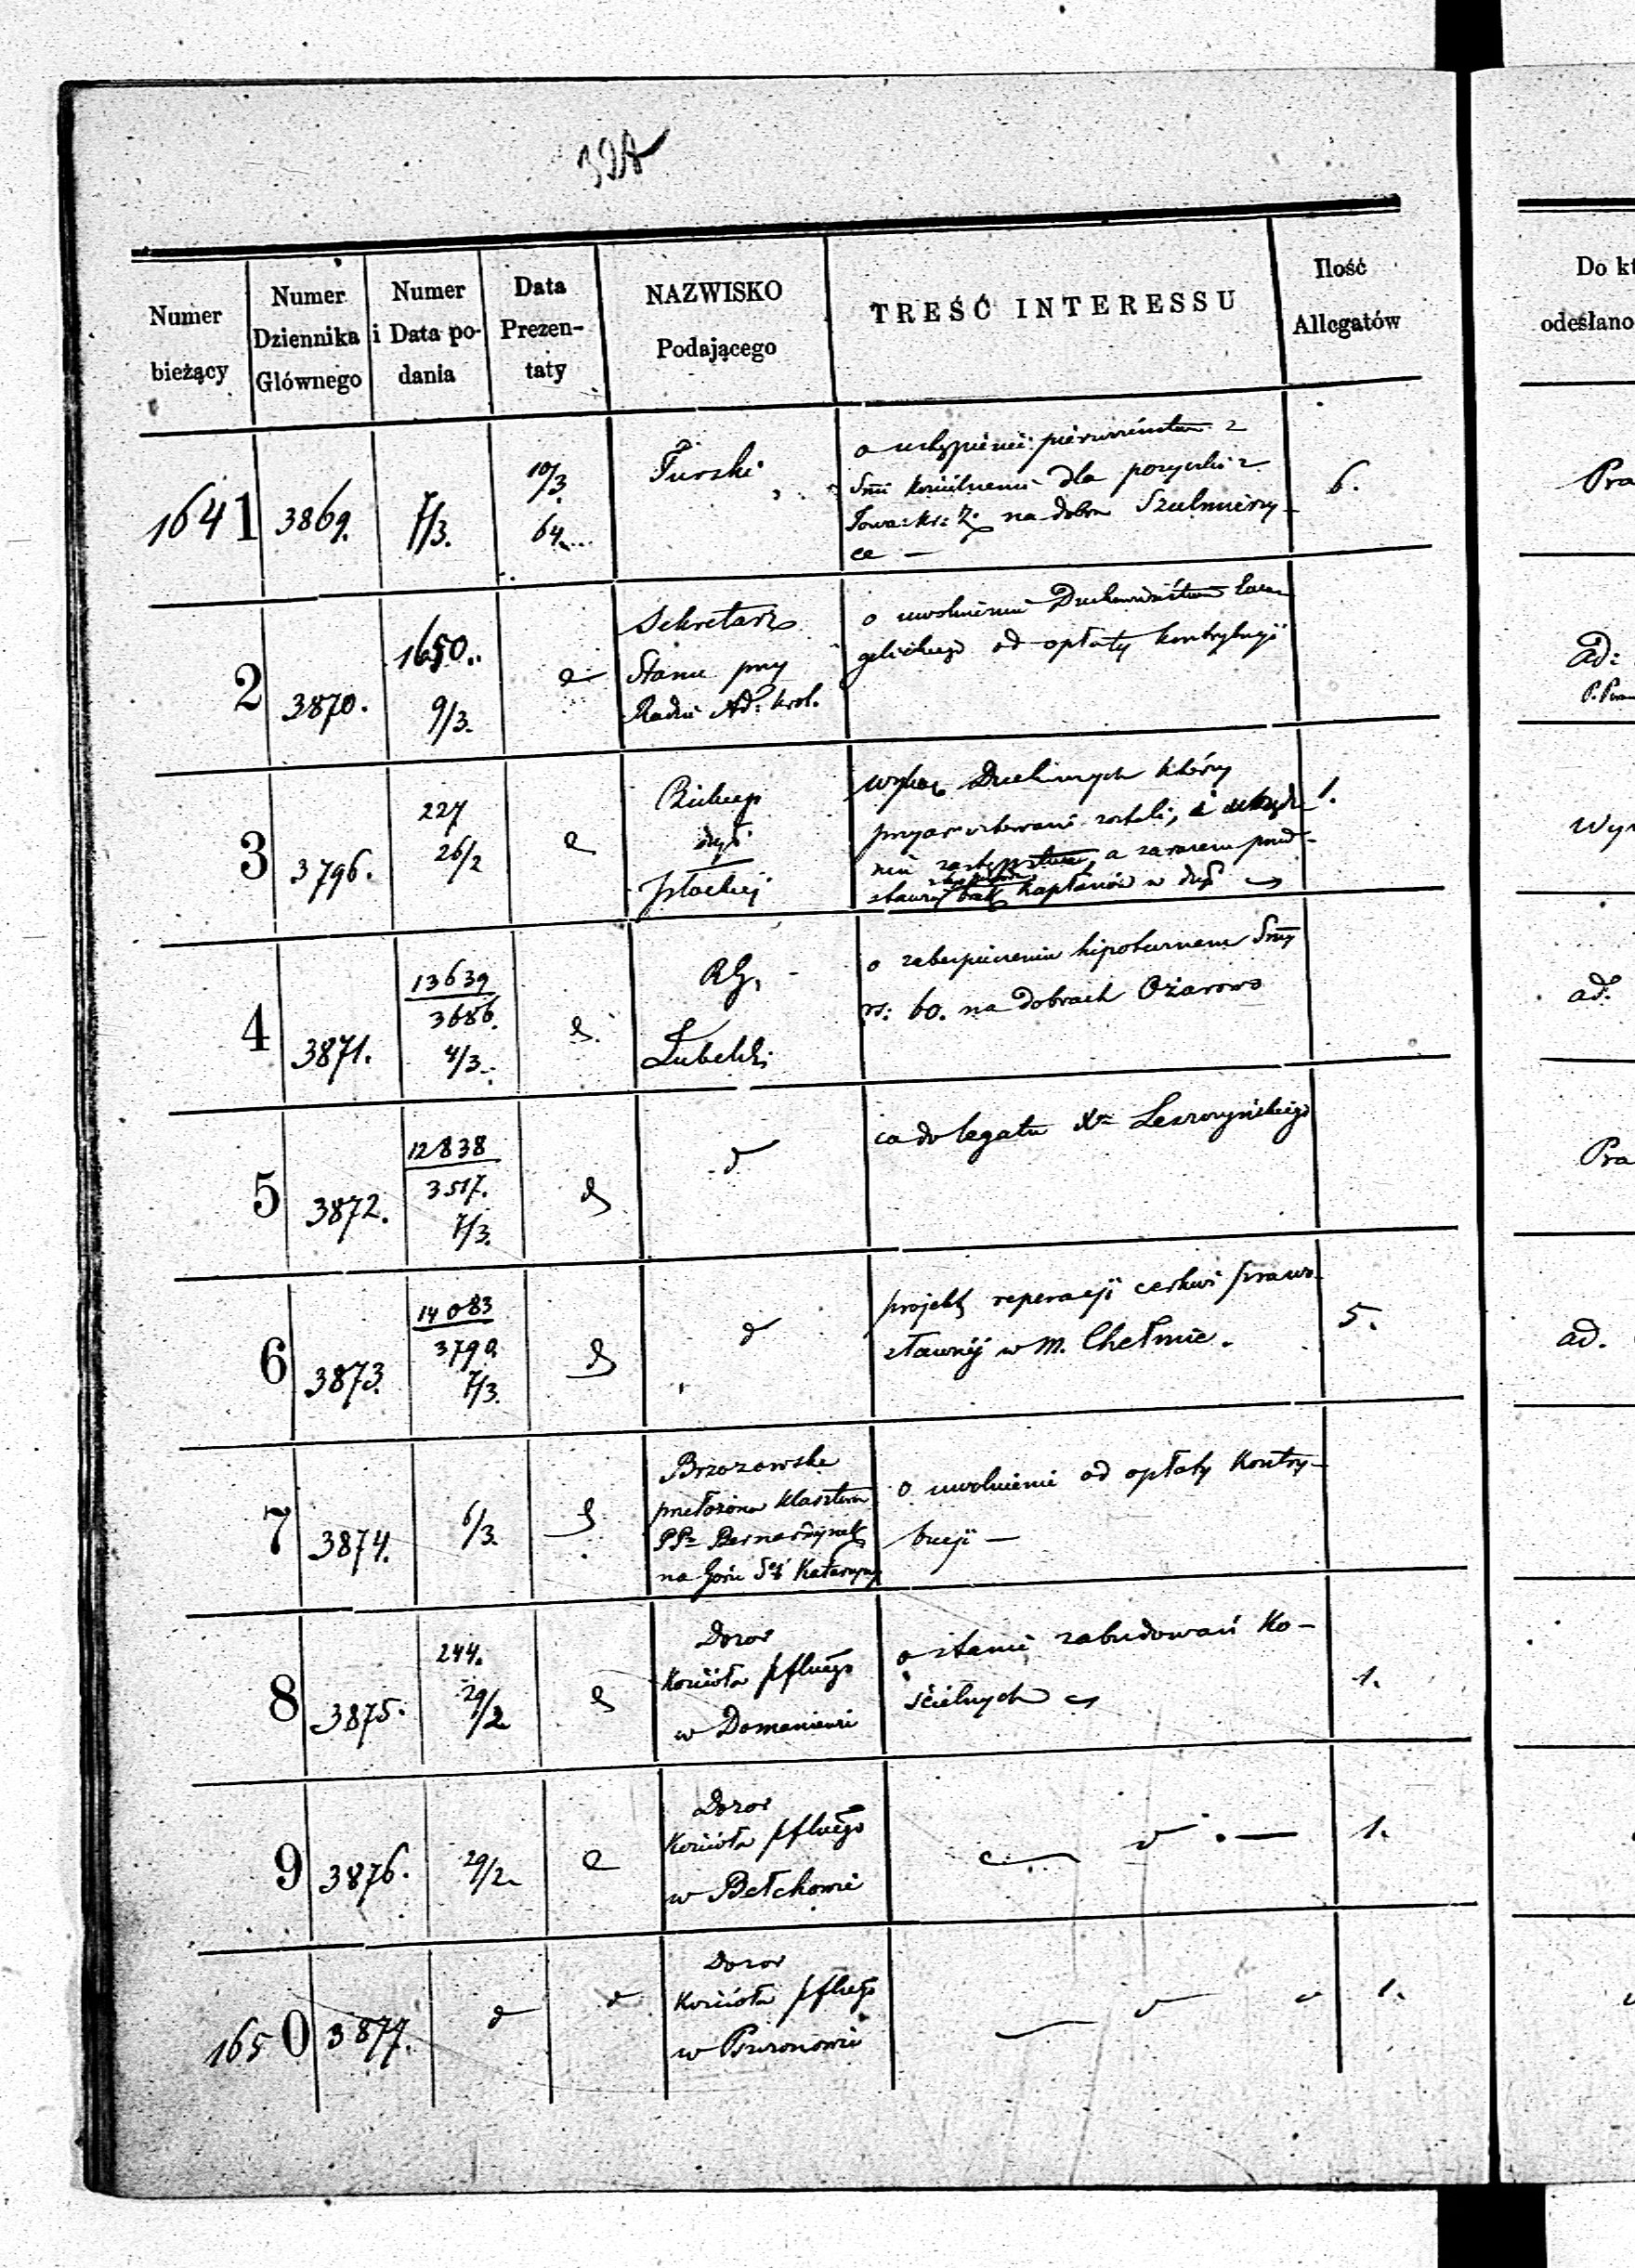 Numer bieżący
Numer Dziennika Głównego
Numer i Data podania
Data Prezentaty
NAZWISKO Podającego
TREŚĆ INTERESSU
Ilość Allegatów
Do kt
odesłano
1641
3869.
7/3.
10/3.
64
Turski
o ustąpienie pierwszeństwa z
Smi kościelnemi dla pożyczki z
Towa: kr: Z. na dobra Szulmierzy-
ce —
6.
Pra
2
3870.
1650.
9/3.
Sekretarz
Stanu przy
Radzie Ad: Król.
o uwolnienie Duchowieństwa Ewan
gelickiego od opłaty kontrybucji
ad:
3
3796.
227
26/2
Biskup
płockiej
wykaz Duchownych którzy
przyaresztowani zostali,
a zarazem przed-
stawia brak kapłanów w
1.
Wy
4
3871.
13639
3686.
4/3.
RG.
Lubelski
o zabezpieczeniu hipotecznem Smy
rs: 60. na dobrach Ożarowo
ad.
5
3872.
12838
3517.
7/3.
d
co do legatu Xa Leszczyńskiego
Pra
6
3873.
14083
3790.
7/3.
d
projekt reperacji cerkwi prawo-
sławnej w m. Chełmie.
5.
ad.
7
3874.
6/3.
Brzozowska
przełożona klasztoru
PP. Bernardynek
na Górze Sej Katarzyny
o uwolnienie od opłaty Kontry-
bucji —
8
3875.
244.
29/2
Dozór
Kościoła pflnego
w Domaniewi
o stanie zabudowań Ko-
ścielnych
1.
9
3876.
29/2.
Dozór
Kościoła pflnego
w Bełchowie
1.
1650
3877.
d
d
Dozór
Kościoła pflnego
w Pszczonowie
1.